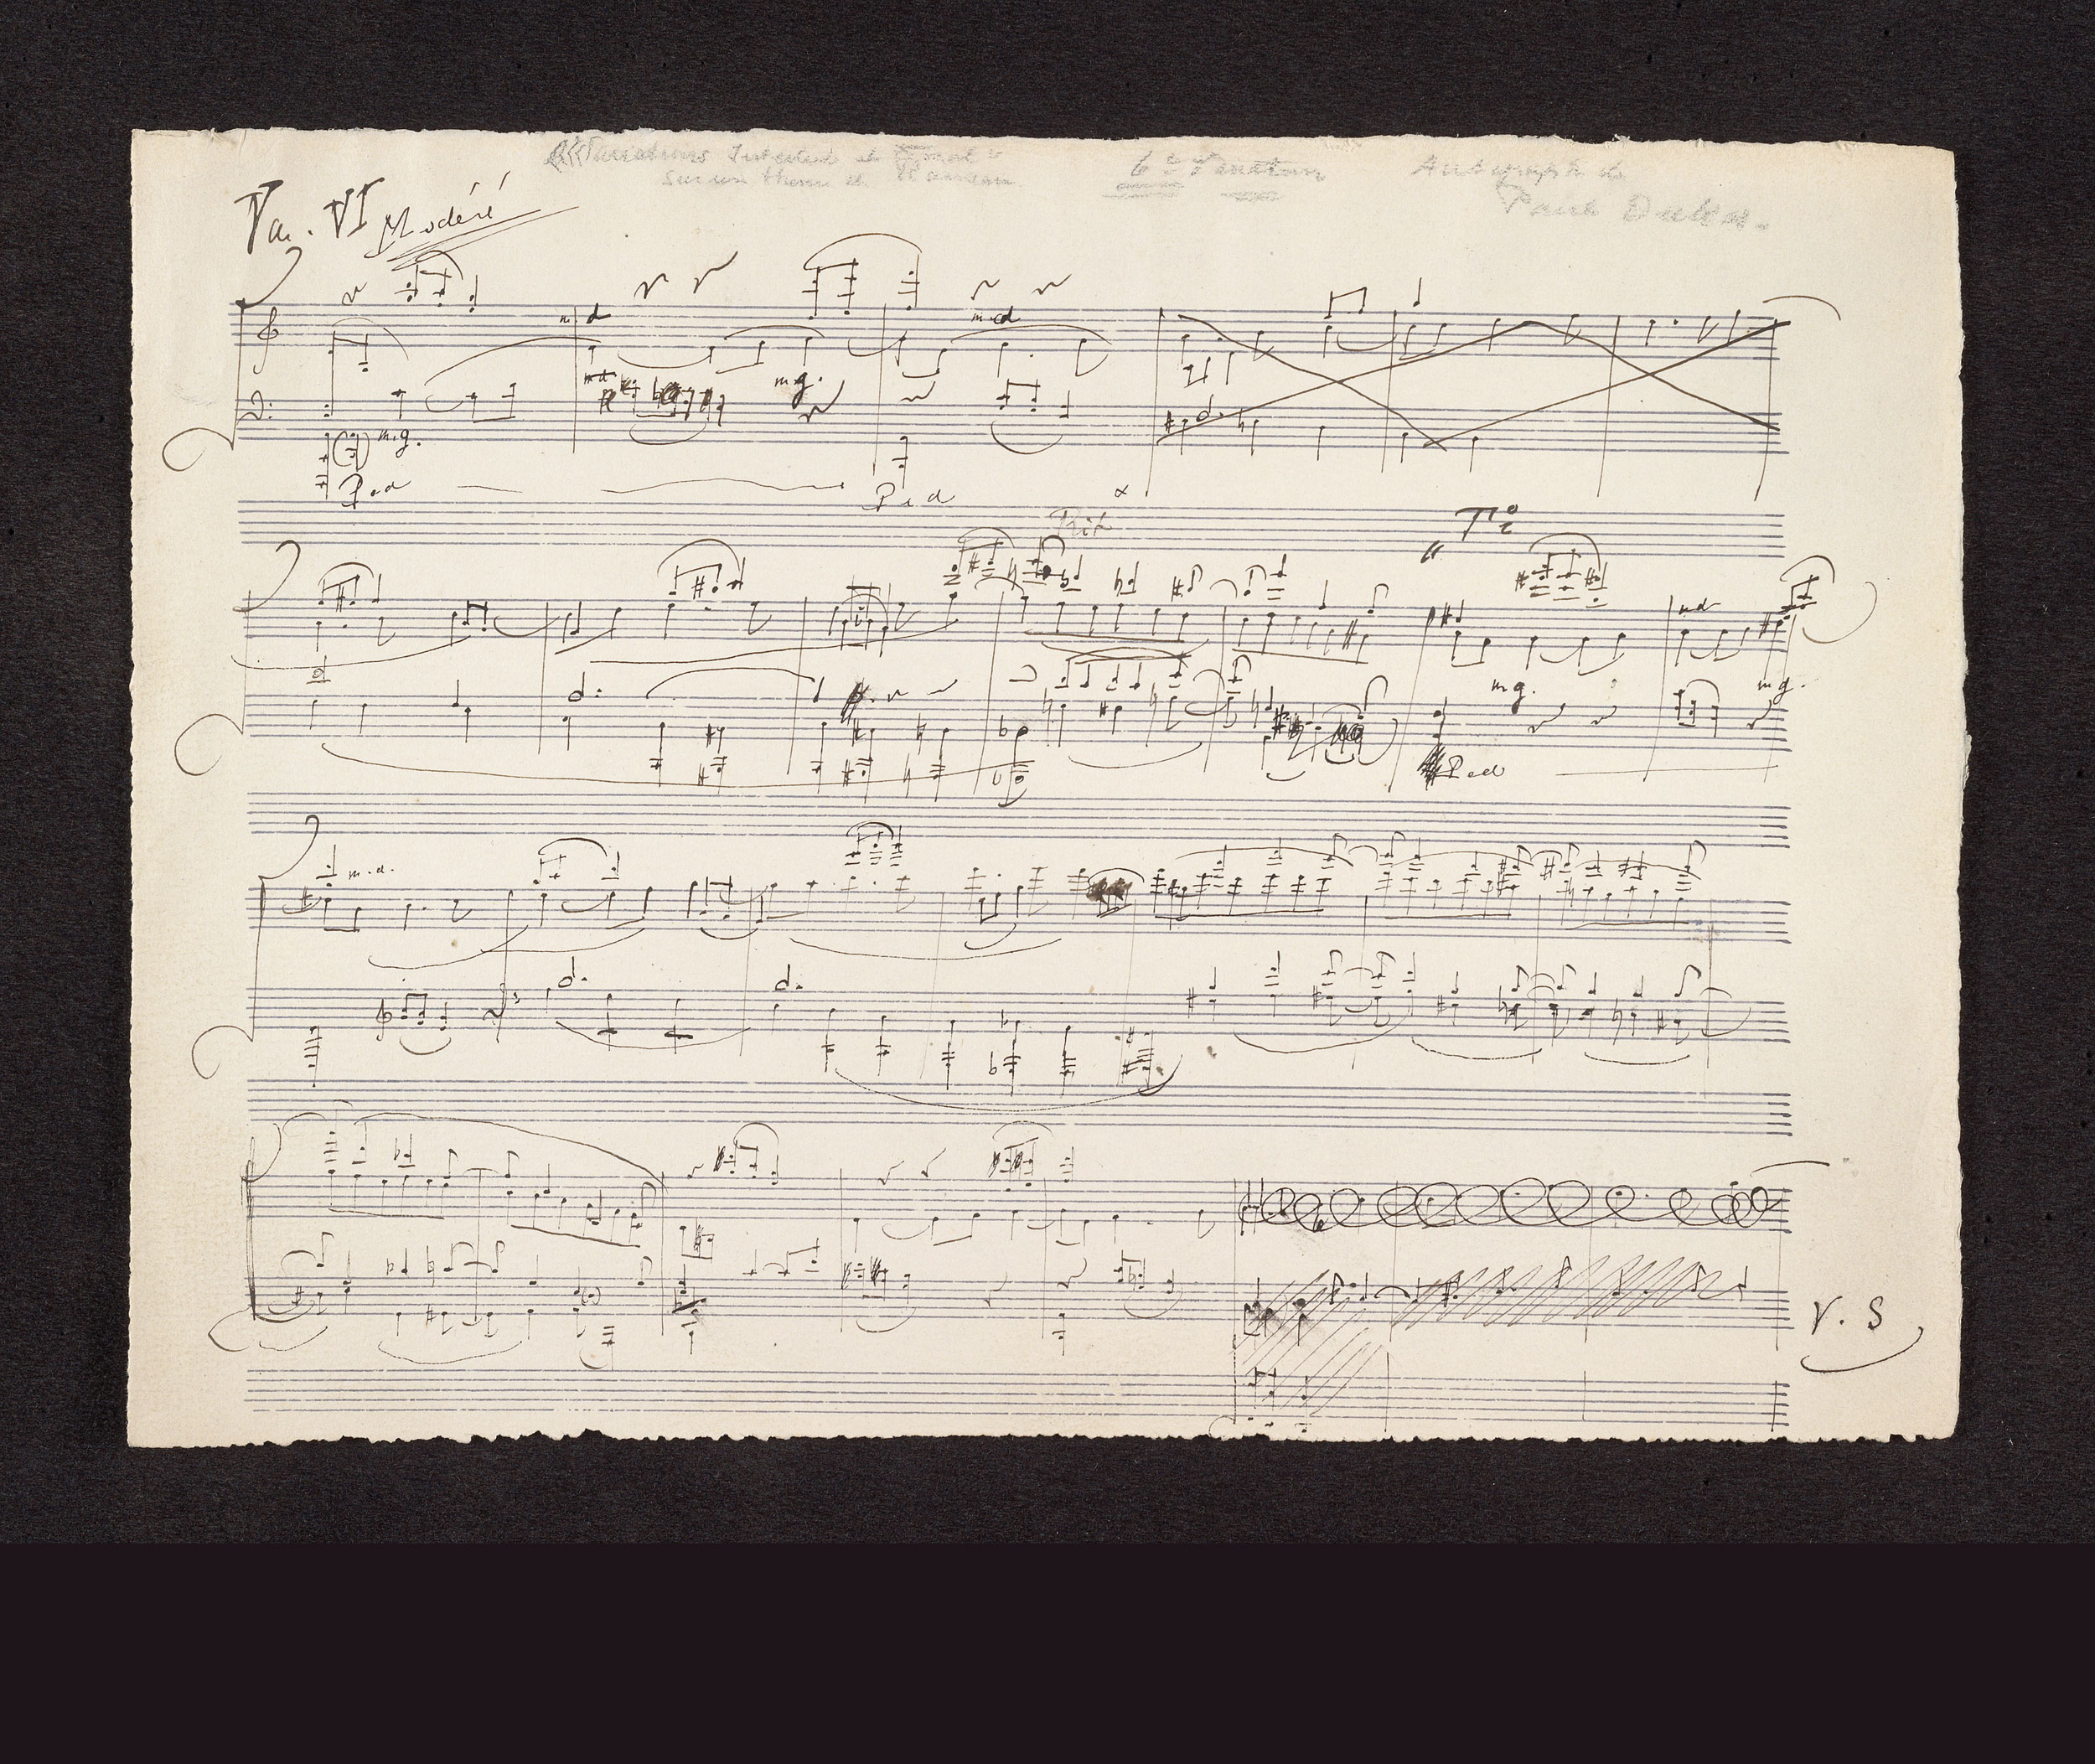 Variations Interlude et Final 6e Variation Autographe de
sur un thème de Rameau Paul Dukas.
Var. VI Modéré
m d
m d
m.d. m.g.
m.g.
Ped Ped
Rit
T°
m d
m g. m g.
Ped
m.d.
V. S